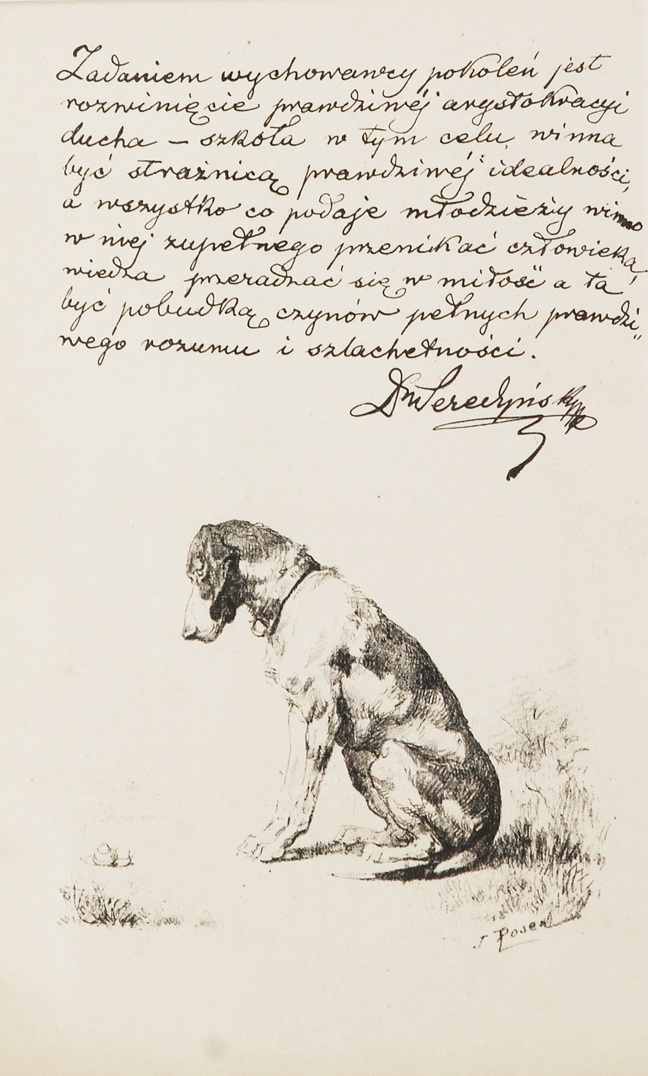 Zadaniem wychowawcy pokoleń jest
rozwinięcie prawdziwéj arystokracyi
ducha – szkoła w tym celu winna
być strażnicą prawdziwéj idealności,
a wszystko co podaje młodzieży winno
w niej zupełnego przenikać człowieka,
wiedza przeradzać się w miłość a ta
być pobudką czynów pełnych prawdzi„
wego rozumu i szlachetności.
Dr Seredyński
J Rosen